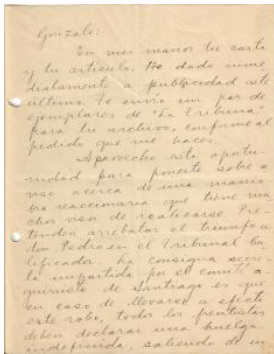 Gonzalo:
En mis manos tu carta
y tu artículo. He dado inme
diatamente a publicidad este
último. Te envío un par de
ejemplares de "La Tribuna"
para tu archivo, conforme al
pedido que me haces.
Aprovecho esta oportu-
nidad para ponerte sobre a
viso acerca de una manio
bra reaccionaria que tiene mu
chos visos de realizarse. Pre
tenden arrebatar el triunfo a
don Pedro en el Tribunal Ca
lificador. La consigna acer-
ca impartida por el comité a
quirdista de Santiago es que
en caso de llevarse a efecto
este robo, todos los frentistas
deben declarar una huelga
indefinida, saliendo de in